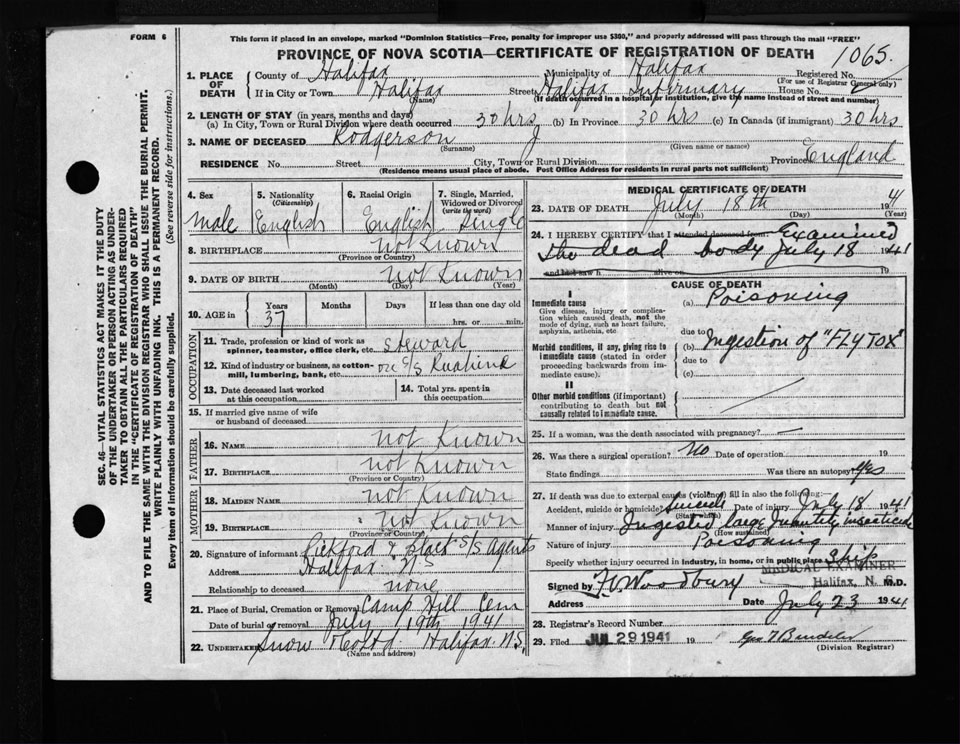 FORM 6
This form if placed in an envelope, marked "Dominion Statistics—Free, penalty for improper use $300," and properly addressed will pass through the mail "FREE"
PROVINCE OF NOVA SCOTIA—CERTIFICATE OF REGISTRATION OF DEATH
1065.
1. PLACE OF DEATH
County of Halifax Municipality of Halifax Registered No.
(For use of Registrar General only)
If in City or Town Halifax Street Halifax Infirmary House No.
(Name) (If death occurred in a hospital or institution, give the name instead of street and number)
2. LENGTH OF STAY (in years, months and days)
(a) In City, Town or Rural Division where death occurred 30 hrs (b) In Province 30 hrs (c) In Canada (if immigrant) 30 hrs
3. NAME OF DECEASED Rodgerson J
(Surname) (Given name or names)
RESIDENCE No. Street City, Town or Rural Division Province England
(Residence means usual place of abode. Post Office Address for residents in rural parts not sufficient)
4. Sex male
5. Nationality (Citizenship) English
6. Racial Origin English
7. Single, Married, Widowed or Divorced (write the word) Single
8. BIRTHPLACE not Known
(Province or Country)
9. DATE OF BIRTH not Known
(Month) (Day) (Year)
10. AGE in Years 37 Months Days If less than one day old
hrs. or min.
OCCUPATION
11. Trade, profession or kind of work as spinner, teamster, office clerk, etc. Steward
12. Kind of industry or business, as cotton-mill, lumbering, bank, etc. on S/S
13. Date deceased last worked at this occupation
14. Total yrs. spent in this occupation
15. If married give name of wife or husband of deceased
FATHER
16. NAME not Known
17. BIRTHPLACE not Known
(Province or Country)
MOTHER
18. MAIDEN NAME not Known
19. BIRTHPLACE not Known
(Province or Country)
20. Signature of informant Pickford & Black S/S Agents
Address Halifax N.S
Relationship to deceased none
21. Place of Burial, Cremation or Removal Camp Hill Cem
Date of burial or removal July 19th 1941
22. UNDERTAKER Snow & Co Ltd Halifax N.S.
(Name and address)
MEDICAL CERTIFICATE OF DEATH
23. DATE OF DEATH July 18th 1941
(Month) (Day) (Year)
24. I HEREBY CERTIFY that I attended deceased from Examined
the dead body July 18 1941
and last saw h alive on 19
CAUSE OF DEATH
I
Immediate cause
Give disease, injury or complication which caused death, not the mode of dying, such as heart failure, asphyxia, asthenia, etc
(a) Poisoning
due to
Morbid conditions, if any, giving rise to immediate cause (stated in order proceeding backwards from immediate cause).
(b) Ingestion of "FLY TOX"
due to
(c)
II
Other morbid conditions (if important) contributing to death but not causally related to immediate cause.
25. If a woman, was the death associated with pregnancy? —
26. Was there a surgical operation? No Date of operation 19
State findings Was there an autopsy? Yes
27. If death was due to external causes (violence) fill in also the following:
Accident, suicide or homicide? Suicide Date of injury July 18 1941
(State which)
Manner of injury Ingested large quantity insecticide
(How sustained)
Nature of injury Poisoning
Specify whether injury occurred in industry, in home, or in public place Ship
MEDICAL EXAMINER
Halifax, N. S.
Signed by Woodbury M.D.
Address Date July 23 1941
28. Registrar's Record Number
29. Filed JUL 29 1941 19
(Division Registrar)
SEC. 46—VITAL STATISTICS ACT MAKES IT THE DUTY
OF THE UNDERTAKER OR PERSON ACTING AS UNDER-
TAKER TO OBTAIN ALL THE PARTICULARS REQUIRED
IN THE "CERTIFICATE OF REGISTRATION OF DEATH"
AND TO FILE THE SAME WITH THE DIVISION REGISTRAR WHO SHALL ISSUE THE BURIAL PERMIT.
WRITE PLAINLY WITH UNFADING INK. THIS IS A PERMANENT RECORD.
Every item of information should be carefully supplied. (See reverse side for instructions.)